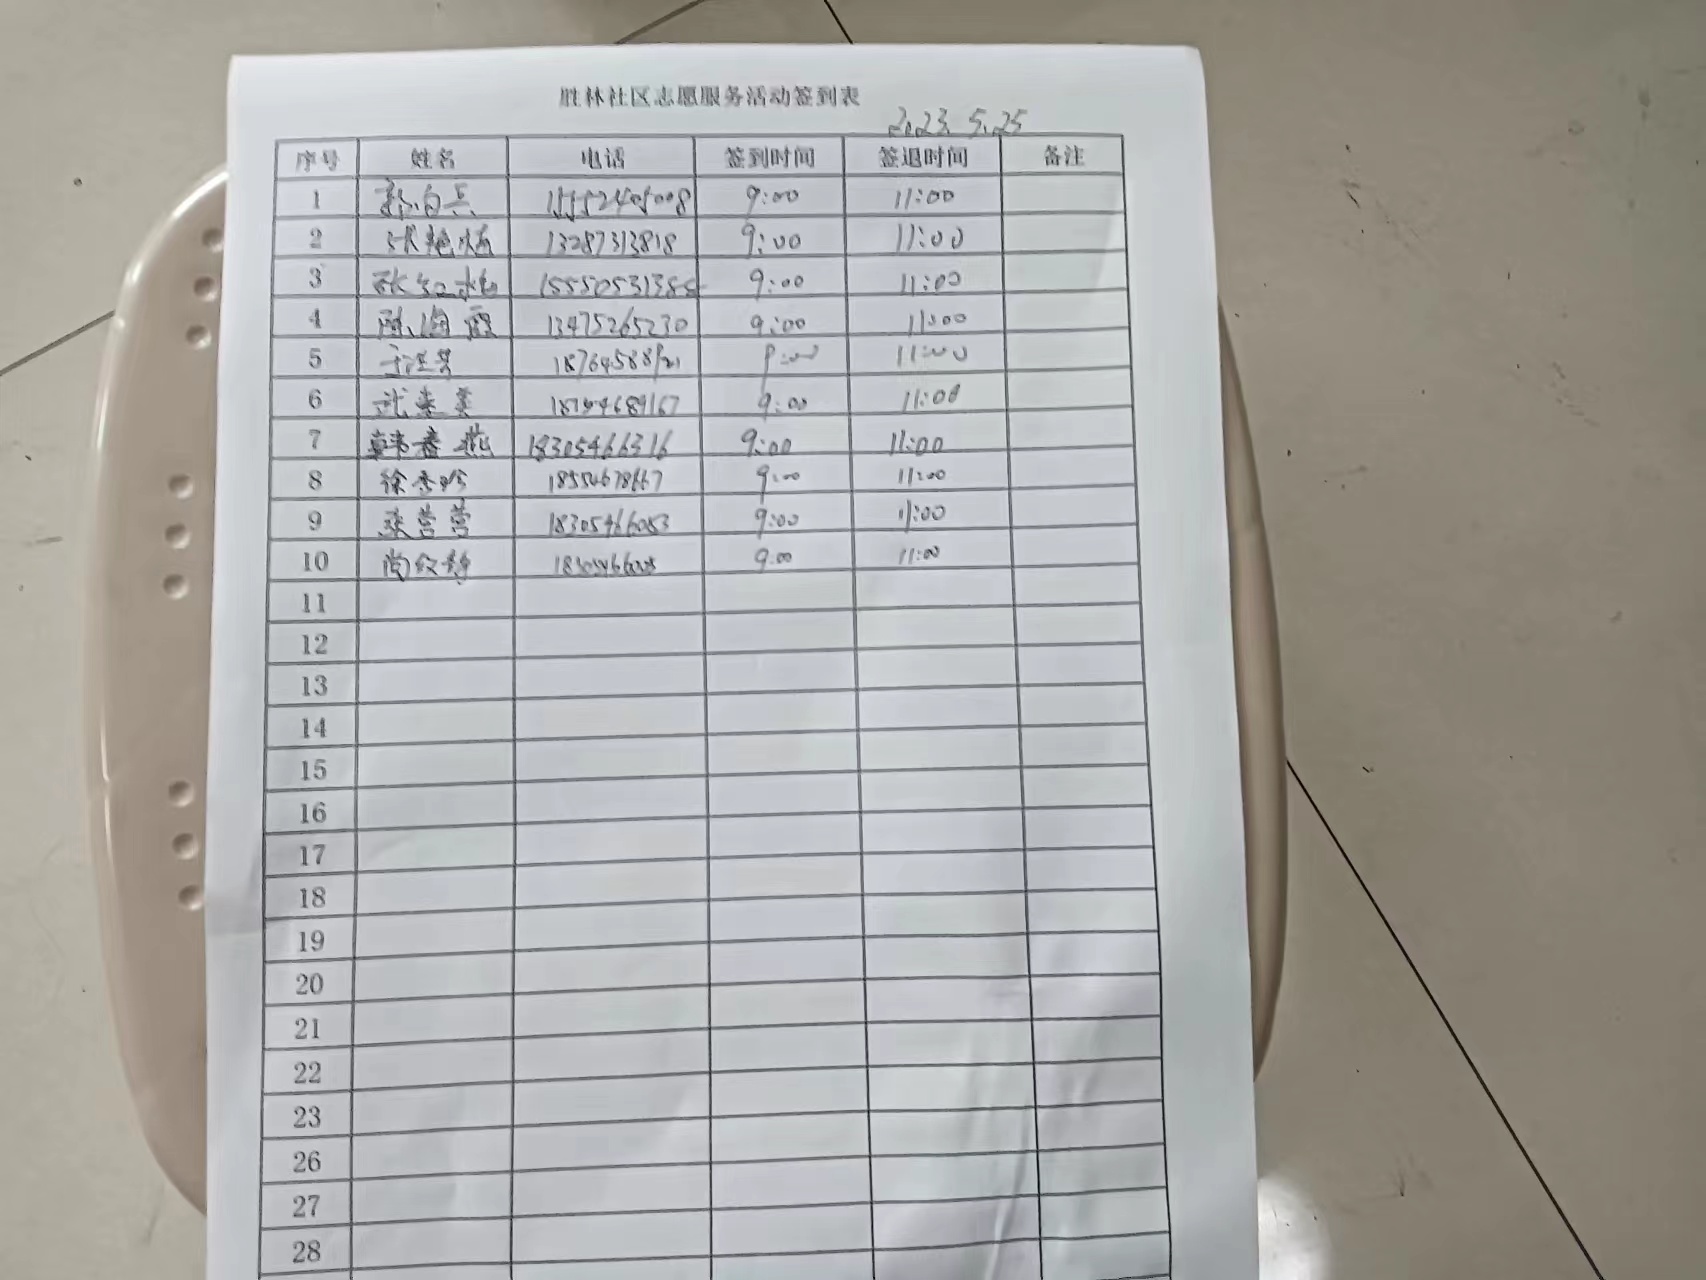 胜林社区志愿服务活动签到表
2023.5.25
序号 姓名 电话 签到时间 签退时间 备注
1 15552405008 9:00 11:00
2 13287313818 9:00 11:00
3 9:00 11:00
4 陈海霞 13475265230 9:00 11:00
5 9:00 11:00
6 9:00 11:00
7 韩春燕 18305466316 9:00 11:00
8 徐秀珍 9:00 11:00
9 营营 18305466083 9:00 11:00
10 尚纹静 9:00 11:00
11
12
13
14
15
16
17
18
19
20
21
22
23
26
27
28